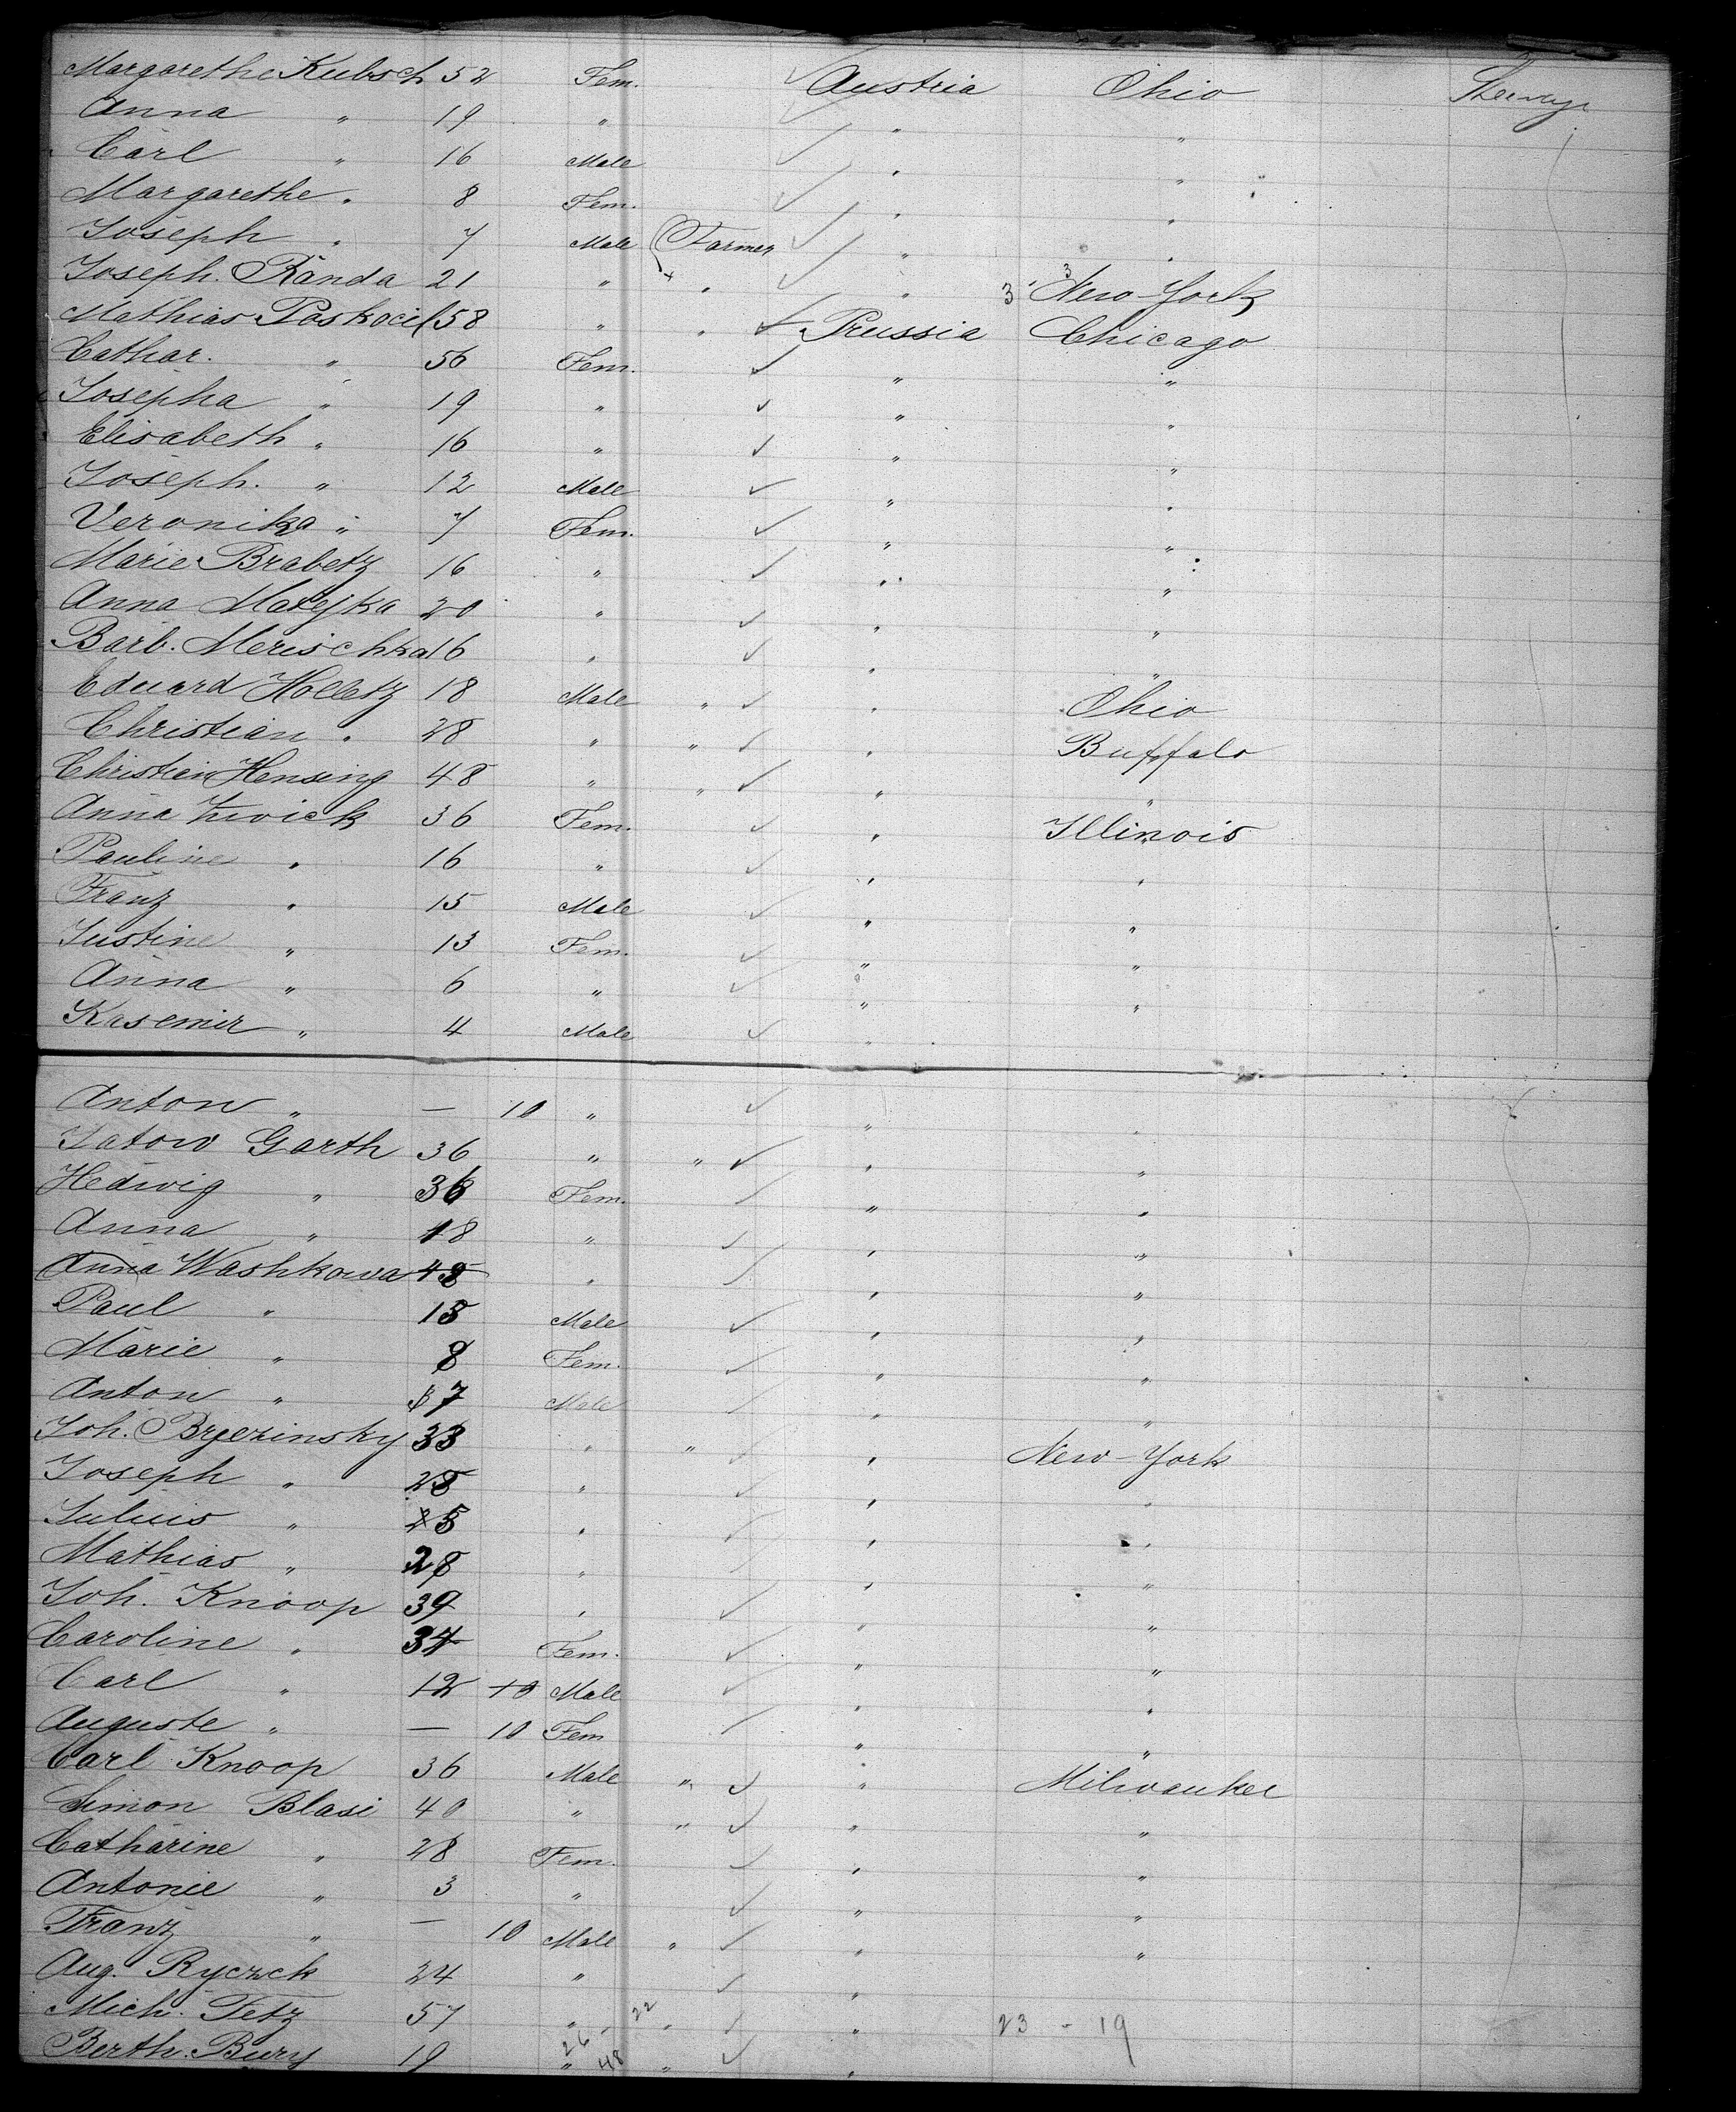 Margarethe Kubsch 52 Fem. Austria Ohio
Anna " 19 " " "
Carl " 16 Male " "
Margarethe " 8 Fem. " "
Joseph " 7 Male Farmer " "
Joseph. Randa 21 " " " 3 New-York
Mathias Poskocil 58 " " Prussia Chicago
Cathar. " 56 Fem. " "
Josepha " 19 " " "
Elisabeth " 16 " " "
Joseph. " 12 Male " "
Veronika " 7 Fem. " "
Marie Brabetz 16 " " "
Anna Matejka 20 " " "
Barb. Merischka 16 " " "
Eduard Holletz 18 Male " " Ohio
Christian " 28 " " " Buffalo
Christian Hensing 48 " " " "
Anna Zwick 36 Fem. " Illinois
Pauline " 16 " " "
Franz " 15 Male " "
Justine " 13 Fem. " "
Anna " 6 " " "
Kasemir " 4 Male "
Anton " — 10 " " "
Jatow Garth 36 " " " "
Hedwig " 36 Fem. " "
Anna " 18 " " "
Anna Washkowa 48 " " "
Paul " 15 Male " "
Marie " 8 Fem. " "
Anton " 7 Male " "
Joh. Brzezinsky 33 " " " New-York
Joseph " 28 " " "
Julius " 25 " " "
Mathias " 28 " " "
Joh. Knoop 39 " " "
Caroline " 34 Fem. " "
Carl " 12 10 Male " "
Auguste " — 10 Fem " "
Carl Knoop 36 Male " " Milwaukee
Simon Blasi 40 " " " "
Catharine " 28 Fem. " "
Antonie " 3 " " "
Franz " — 10 Male " " "
Aug. Ryczek 24 " "
Mich. Tetz 57 " 22 " " 23 - 19
Berth. Bury 19 " 26 48 " "